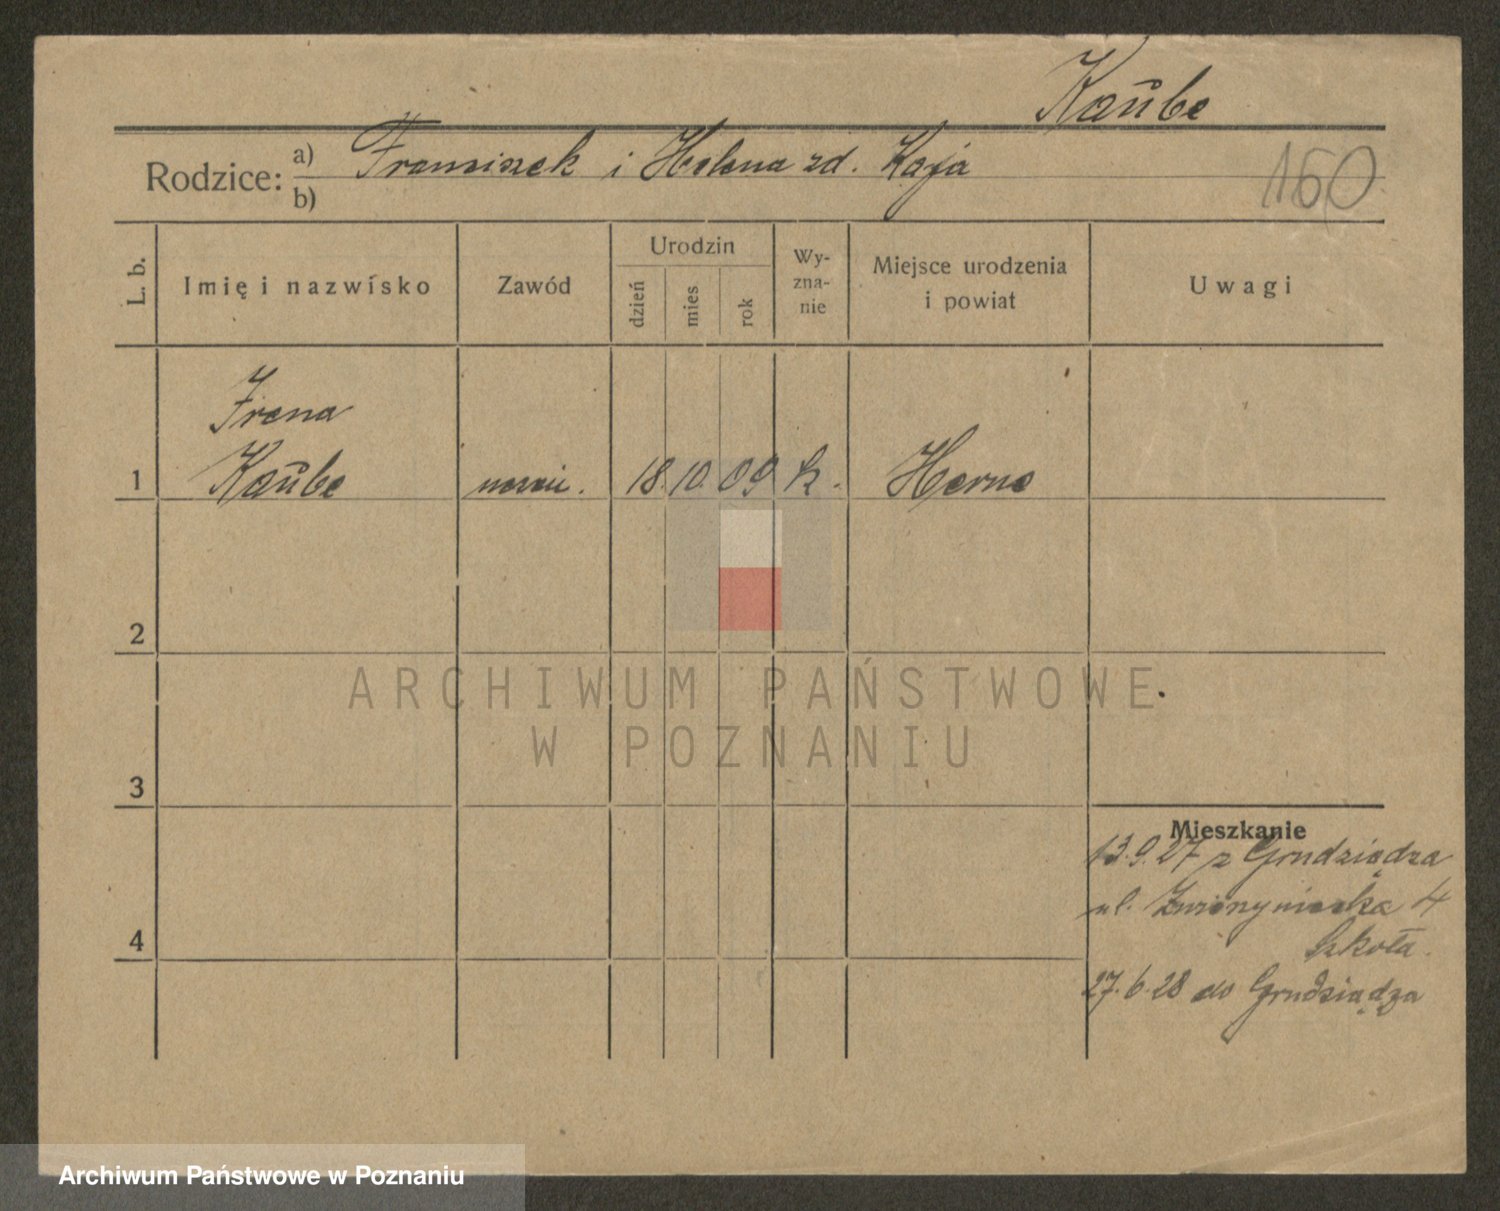 Kaŭbe
Rodzice: a) Franciszek i Helena zd. Kaja
b)
160
L. b.
Imię i nazwisko
Zawód
Urodzin
dzień
mies
rok
Wy-
zna-
nie
Miejsce urodzenia
i powiat
Uwagi
Irena
1 Kaŭbe uczeń. 18. 10. 09 k. Herne
2
3
4
Mieszkanie
13.9.27 z Grudziądza
ul. 4
Szkoła.
27.6.28 do Grudziądza
ARCHIWUM PAŃSTWOWE
W POZNANIU
Archiwum Państwowe w Poznaniu